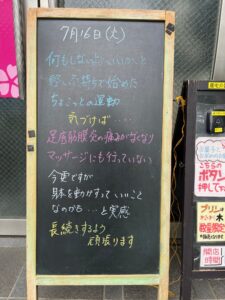 7月16日(火)
何もしない よりいいか、と
軽い気持ちで始めた
ちょこっとの運動
気づけば・・・・
足底筋膜炎の痛みがなくなり
マッサージにも行っていない
今更ですが
身体を動かすって いいこと
なのかも…と実感
長続きするよう
頑張ります
こちらの
ボタン
押して
プリン
木
数量限定
開店
時間